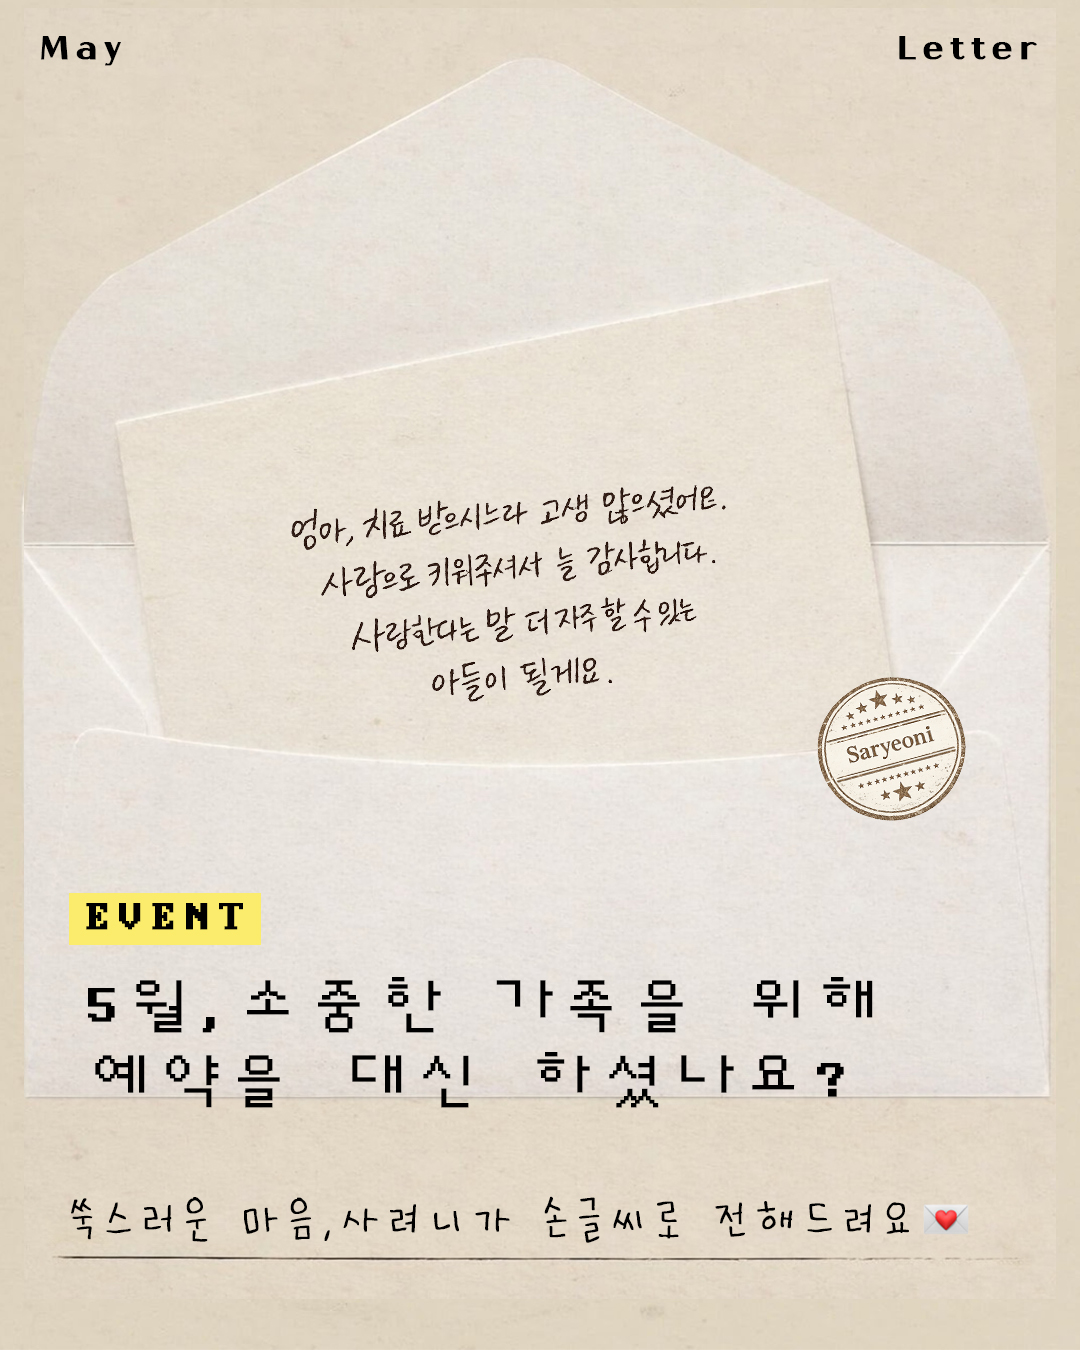 May
Letter
엄마, 치료 받으시느라 고생 많으셨어요.
사랑으로 키워주셔서 늘 감사합니다.
사랑한다는 말 더 자주 할 수 있는
아들이 될게요.
Saryeoni
EVENT
5월, 소중한 가족을 위해
예약을 대신 하셨나요?
쑥스러운 마음, 사려니가 손글씨로 전해드려요 💌